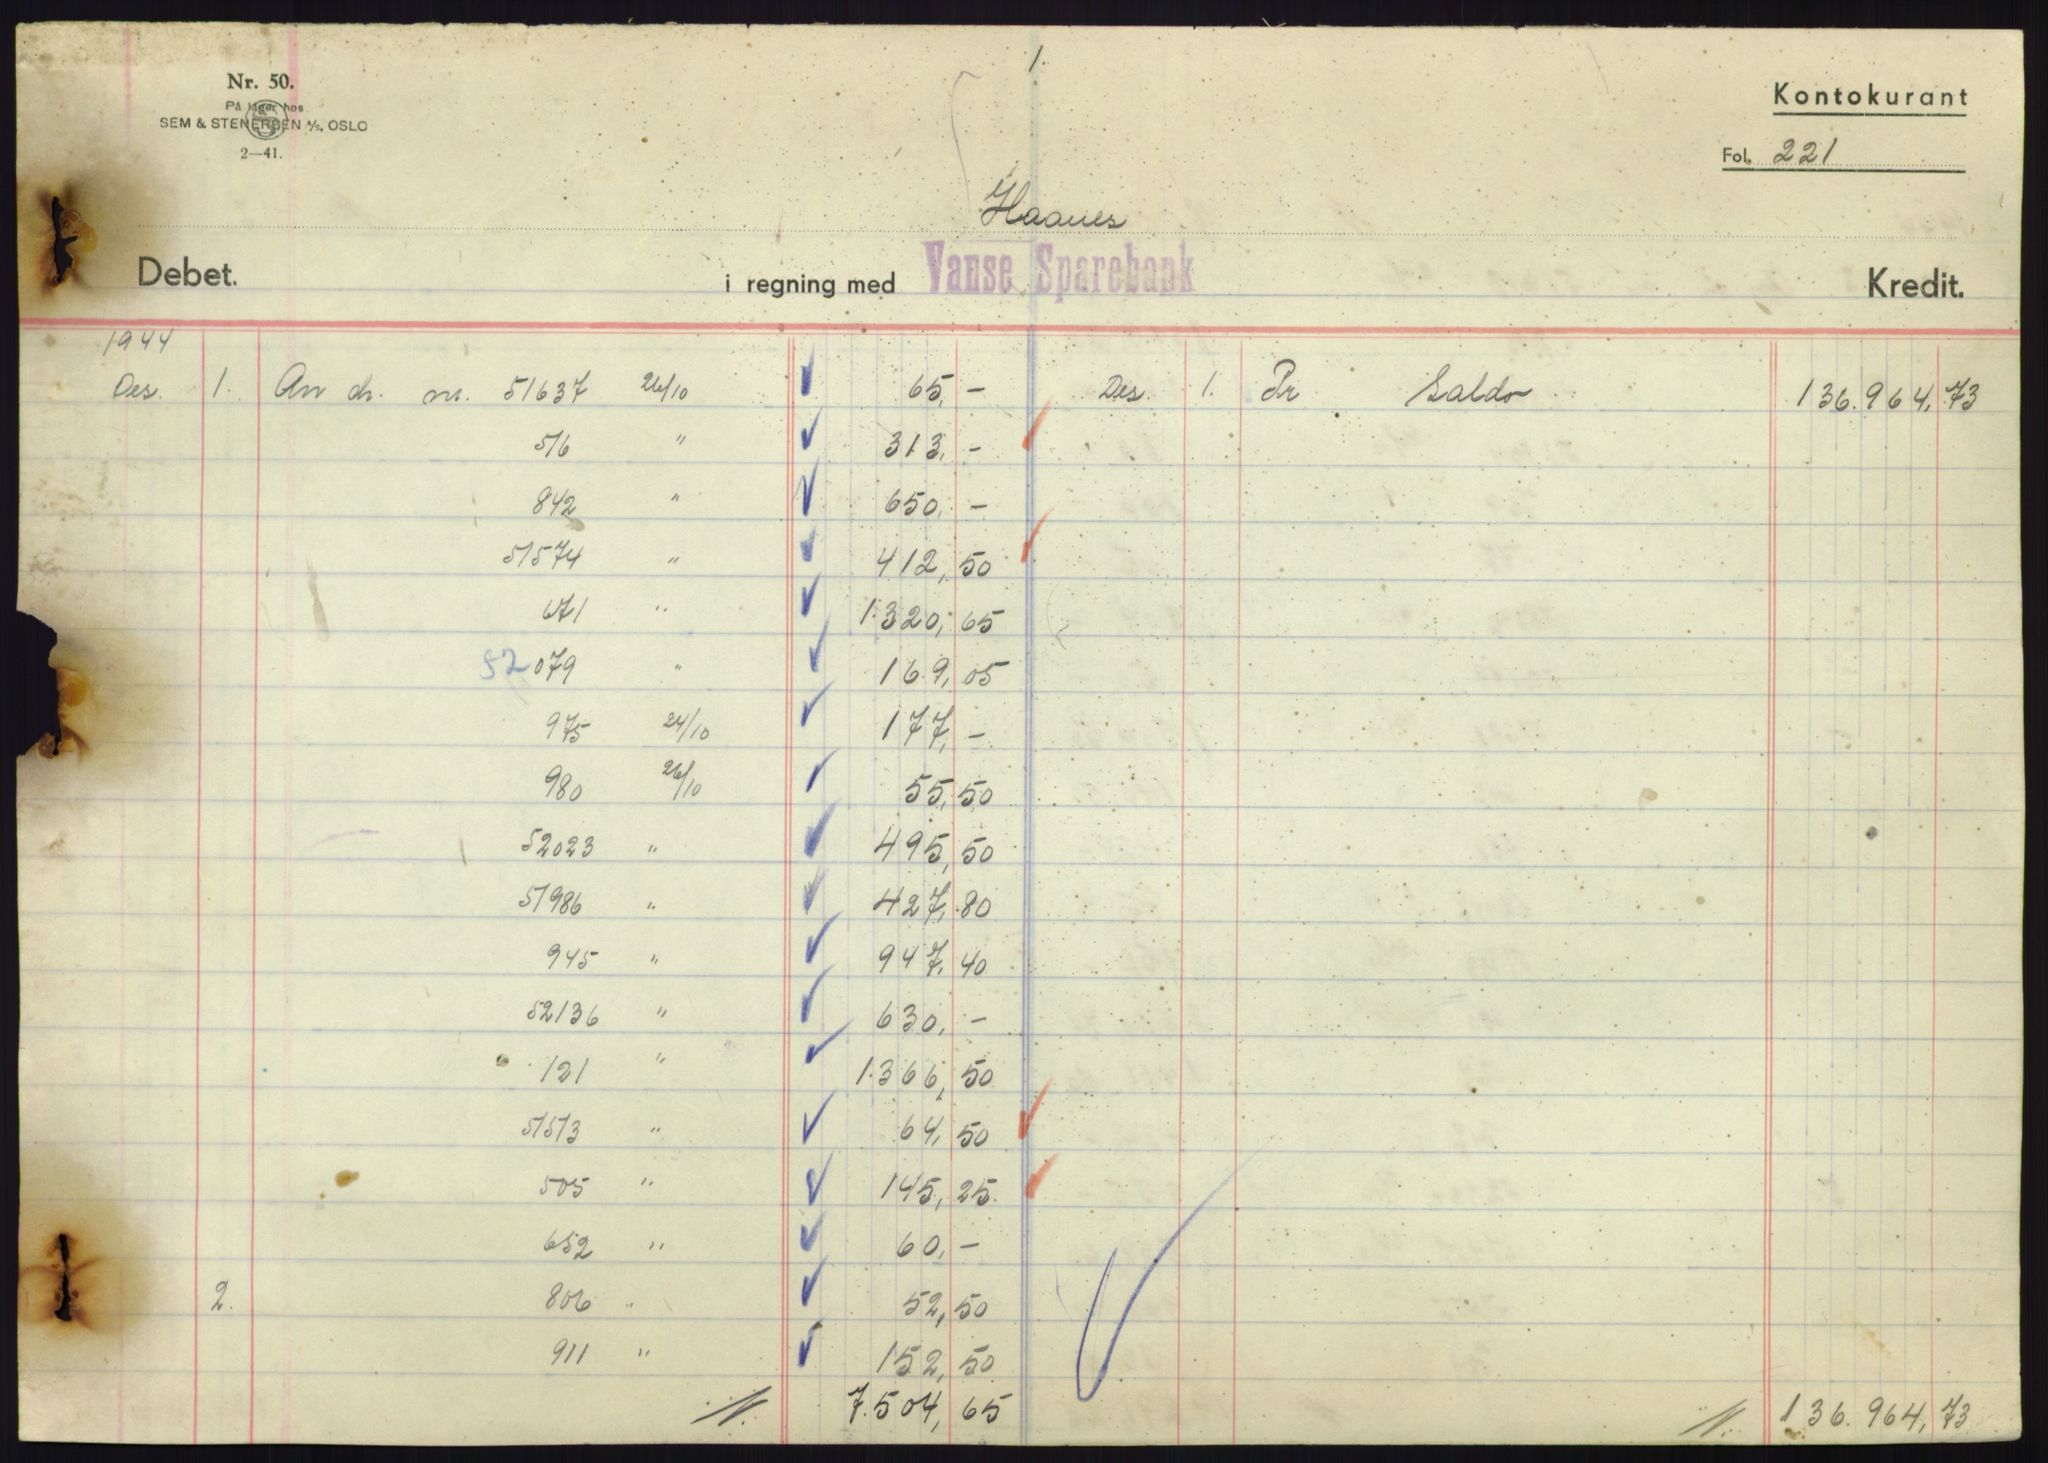 1.
Nr. 50.
På lager hos
SEM & STENERSEN A/S, OSLO
2—41.
Kontokurant
Fol. 221
Haanes
Debet. i regning med Vanse Sparebank Kredit.
1944
Des. 1. An ch. nr. 51637 26/10 65,- Des. 1. Pr Saldo 136.964,73
516 " 313,-
842 " 650,-
51574 " 412,50
671 " 1.320,65
52079 " 169,05
975 24/10 177,-
980 26/10 55,50
52023 " 495,50
51986 " 427,80
945 " 947,40
52136 " 630,-
121 " 1.366,50
51513 " 64,50
505 " 145,25
652 " 60,-
2. 806 " 52,50
911 " 152,50
7.504,65 136.964,73